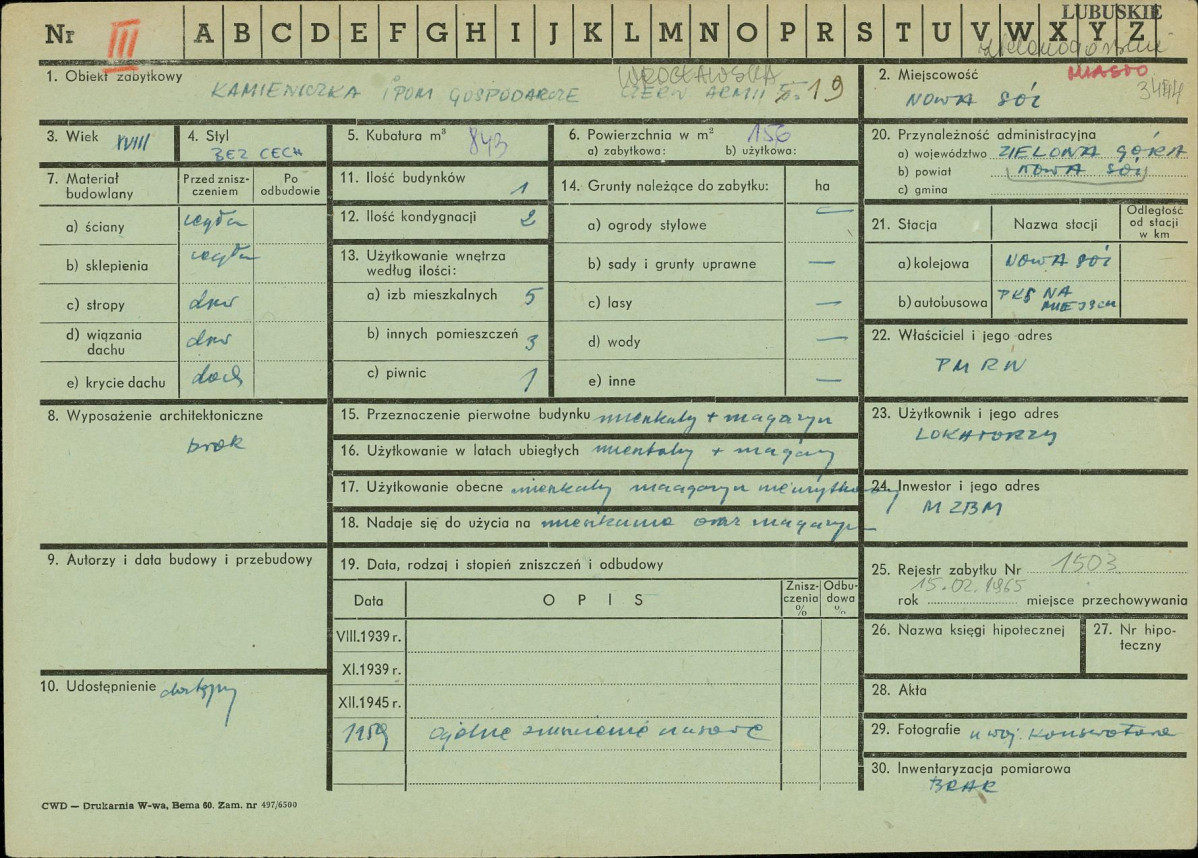 LUBUSKIE
Nr III A B C D E F G H I J K L M N O P R S T U V W X Y Z
1. Obiekt zabytkowy
WROCŁAWSKA
KAMIENICZKA I POM GOSPODARCZE CZERW ARMII 19
2. Miejscowość MIASTO
NOWA SÓL
3. Wiek XVIII
4. Styl
BEZ CECH
5. Kubatura m³ 843
6. Powierzchnia w m² 156
a) zabytkowa: b) użytkowa:
7. Materiał budowlany
Przed znisz-
czeniem
Po
odbudowie
a) ściany cegła
b) sklepienia cegła
c) stropy drew
d) wiązania
dachu drew
e) krycie dachu dach
8. Wyposażenie architektoniczne
brak
9. Autorzy i data budowy i przebudowy
10. Udostępnienie dostępny
11. Ilość budynków 1
12. Ilość kondygnacji 2
13. Użytkowanie wnętrza
według ilości:
a) izb mieszkalnych 5
b) innych pomieszczeń 3
c) piwnic 1
14. Grunty należące do zabytku: ha
a) ogrody stylowe —
b) sady i grunty uprawne —
c) lasy —
d) wody —
e) inne —
15. Przeznaczenie pierwotne budynku mieszkalny + magazyn
16. Użytkowanie w latach ubiegłych mieszkalny + magazyn
17. Użytkowanie obecne mieszkalny magazyn nieużytkowany
18. Nadaje się do użycia na mieszkanie oraz magazyn
19. Data, rodzaj i stopień zniszczeń i odbudowy
Data
O P I S
Znisz-
czenia
%
Odbu-
dowa
%
VIII.1939 r.
XI.1939 r.
XII.1945 r.
1959 ogólne zniszczenie
20. Przynależność administracyjna
a) województwo ZIELONA GÓRA
b) powiat NOWA SÓL
c) gmina
21. Stacja
Nazwa stacji
Odległość
od stacji
w km
a) kolejowa NOWA SÓL
b) autobusowa PKS NA
MIEJSCU
22. Właściciel i jego adres
PMRN
23. Użytkownik i jego adres
LOKATORZY
24. Inwestor i jego adres
MZBM
25. Rejestr zabytku Nr 1503
15.02.1965
rok miejsce przechowywania
26. Nazwa księgi hipotecznej
27. Nr hipo-
teczny
28. Akta
29. Fotografie u woj. Konserwatora
30. Inwentaryzacja pomiarowa
BRAK
CWD — Drukarnia W-wa, Bema 60. Zam. nr 497/6500